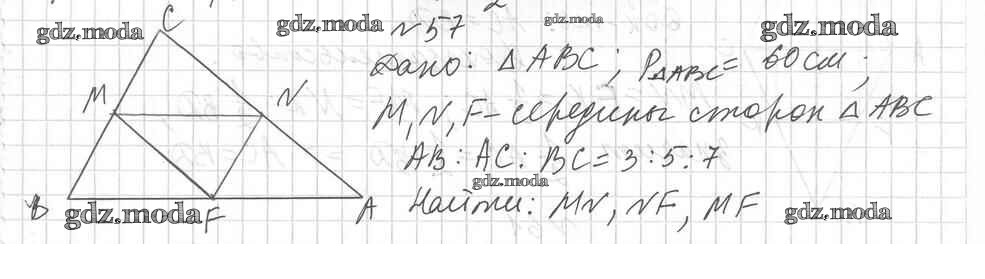 C
gdz.moda gdz.moda N57 gdz.moda gdz.moda
Дано: △ABC; P△ABC = 60 см;
M N M, N, F - середины сторон △ABC
AB : AC : BC = 3 : 5 : 7
gdz.moda
B F A Найти: MN, NF, MF
gdz.moda gdz.moda